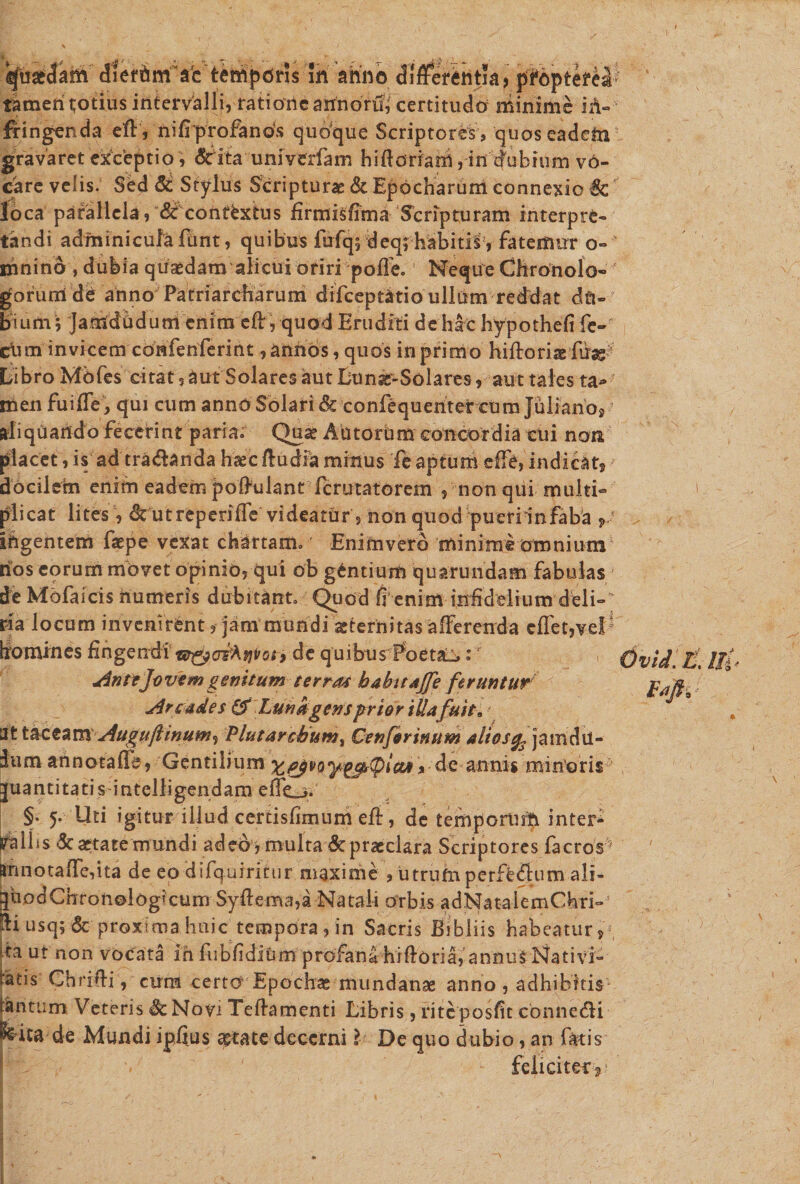 quædam dierûm ac temporis in anno differentia, proptereà
tamen totius intervalli, ratione annorũ, certitudo minimè in-
fringenda est, nisi profanos quoque Scriptores, quos eadem
gravaret exceptio, & ita universam historiam, in dubium vo-
care velis. Sed & Stylus Scripturæ & Epocharum connexio &
loca parallela, & contextus firmissima Scripturam interpre-
tandi adminicula sunt, quibus susq; deq; habitis, fatemur o-
mninò, dubia quædam alicui oriri posse. Neque Chronolo-
gorum de anno Patriarcharum disceptatio ullum reddat du-
bium; Jamdudum enim est, quod Eruditi de hâc hypothesi se-
cum invicem consenserint, annos, quos in primo historiæ suæ
Libro Moses citat, aut Solares aut Lunæ-Solares, aut tales ta-
men fuisse, qui cum anno Solari & consequenter cum Juliano,
aliquando fecerint paria. Quæ Autorum concordia cui non
placet, is ad tractanda hæc studia minus se aptum esse, indicat,
docilem enim eadem postulant scrutatorem, non qui multi-
plicat lites, & ut reperisse videatur, non quod pueri in faba,
ingentem sæpe vexat chartam. Enimverò minimè omnium
nos eorum movet opinio, qui ob gentium quarundam fabulas
de Mosaicis numeris dubitant. Quod si enim infidelium deli-
ria locum invenirent, jam mundi æternitas asserenda esset, vel
homines fingendi προσέληνοι, de quibus Poeta:
Ante Jovem genitum terras habitasse feruntur
Arcades & Luna gens prior illa fuit.
Ovid. L. II.
Fast.
ut taceam Augustinum, Plutarchum, Censorinum aliosq; jamdu-
dum annotasse, Gentilium χρονογραφίαι, de annis minoris
quantitatis intelligendam esse.
§. 5. Uti igitur illud certissimum est, de temporum inter-
vallis & ætate mundi adeò, multa & præclara Scriptores sacros
annotasse, ita de eo disquiritur maximè, utrum perfectum ali-
quod Chronologicum Systema, à Natali orbis ad Natalem Chri-
sti usq; & proxima huic tempora, in Sacris Bibliis habeatur,
ita ut non vocatâ in subsidium profanâ historiâ, annus Nativi-
tatis Christi, cum certo Epochæ mundanæ anno, adhibitis
tantum Veteris & Novi Testamenti Libris, ritè possit connecti
& ita de Mundi ipsius ætate decerni? De quo dubio, an satis
feliciter,